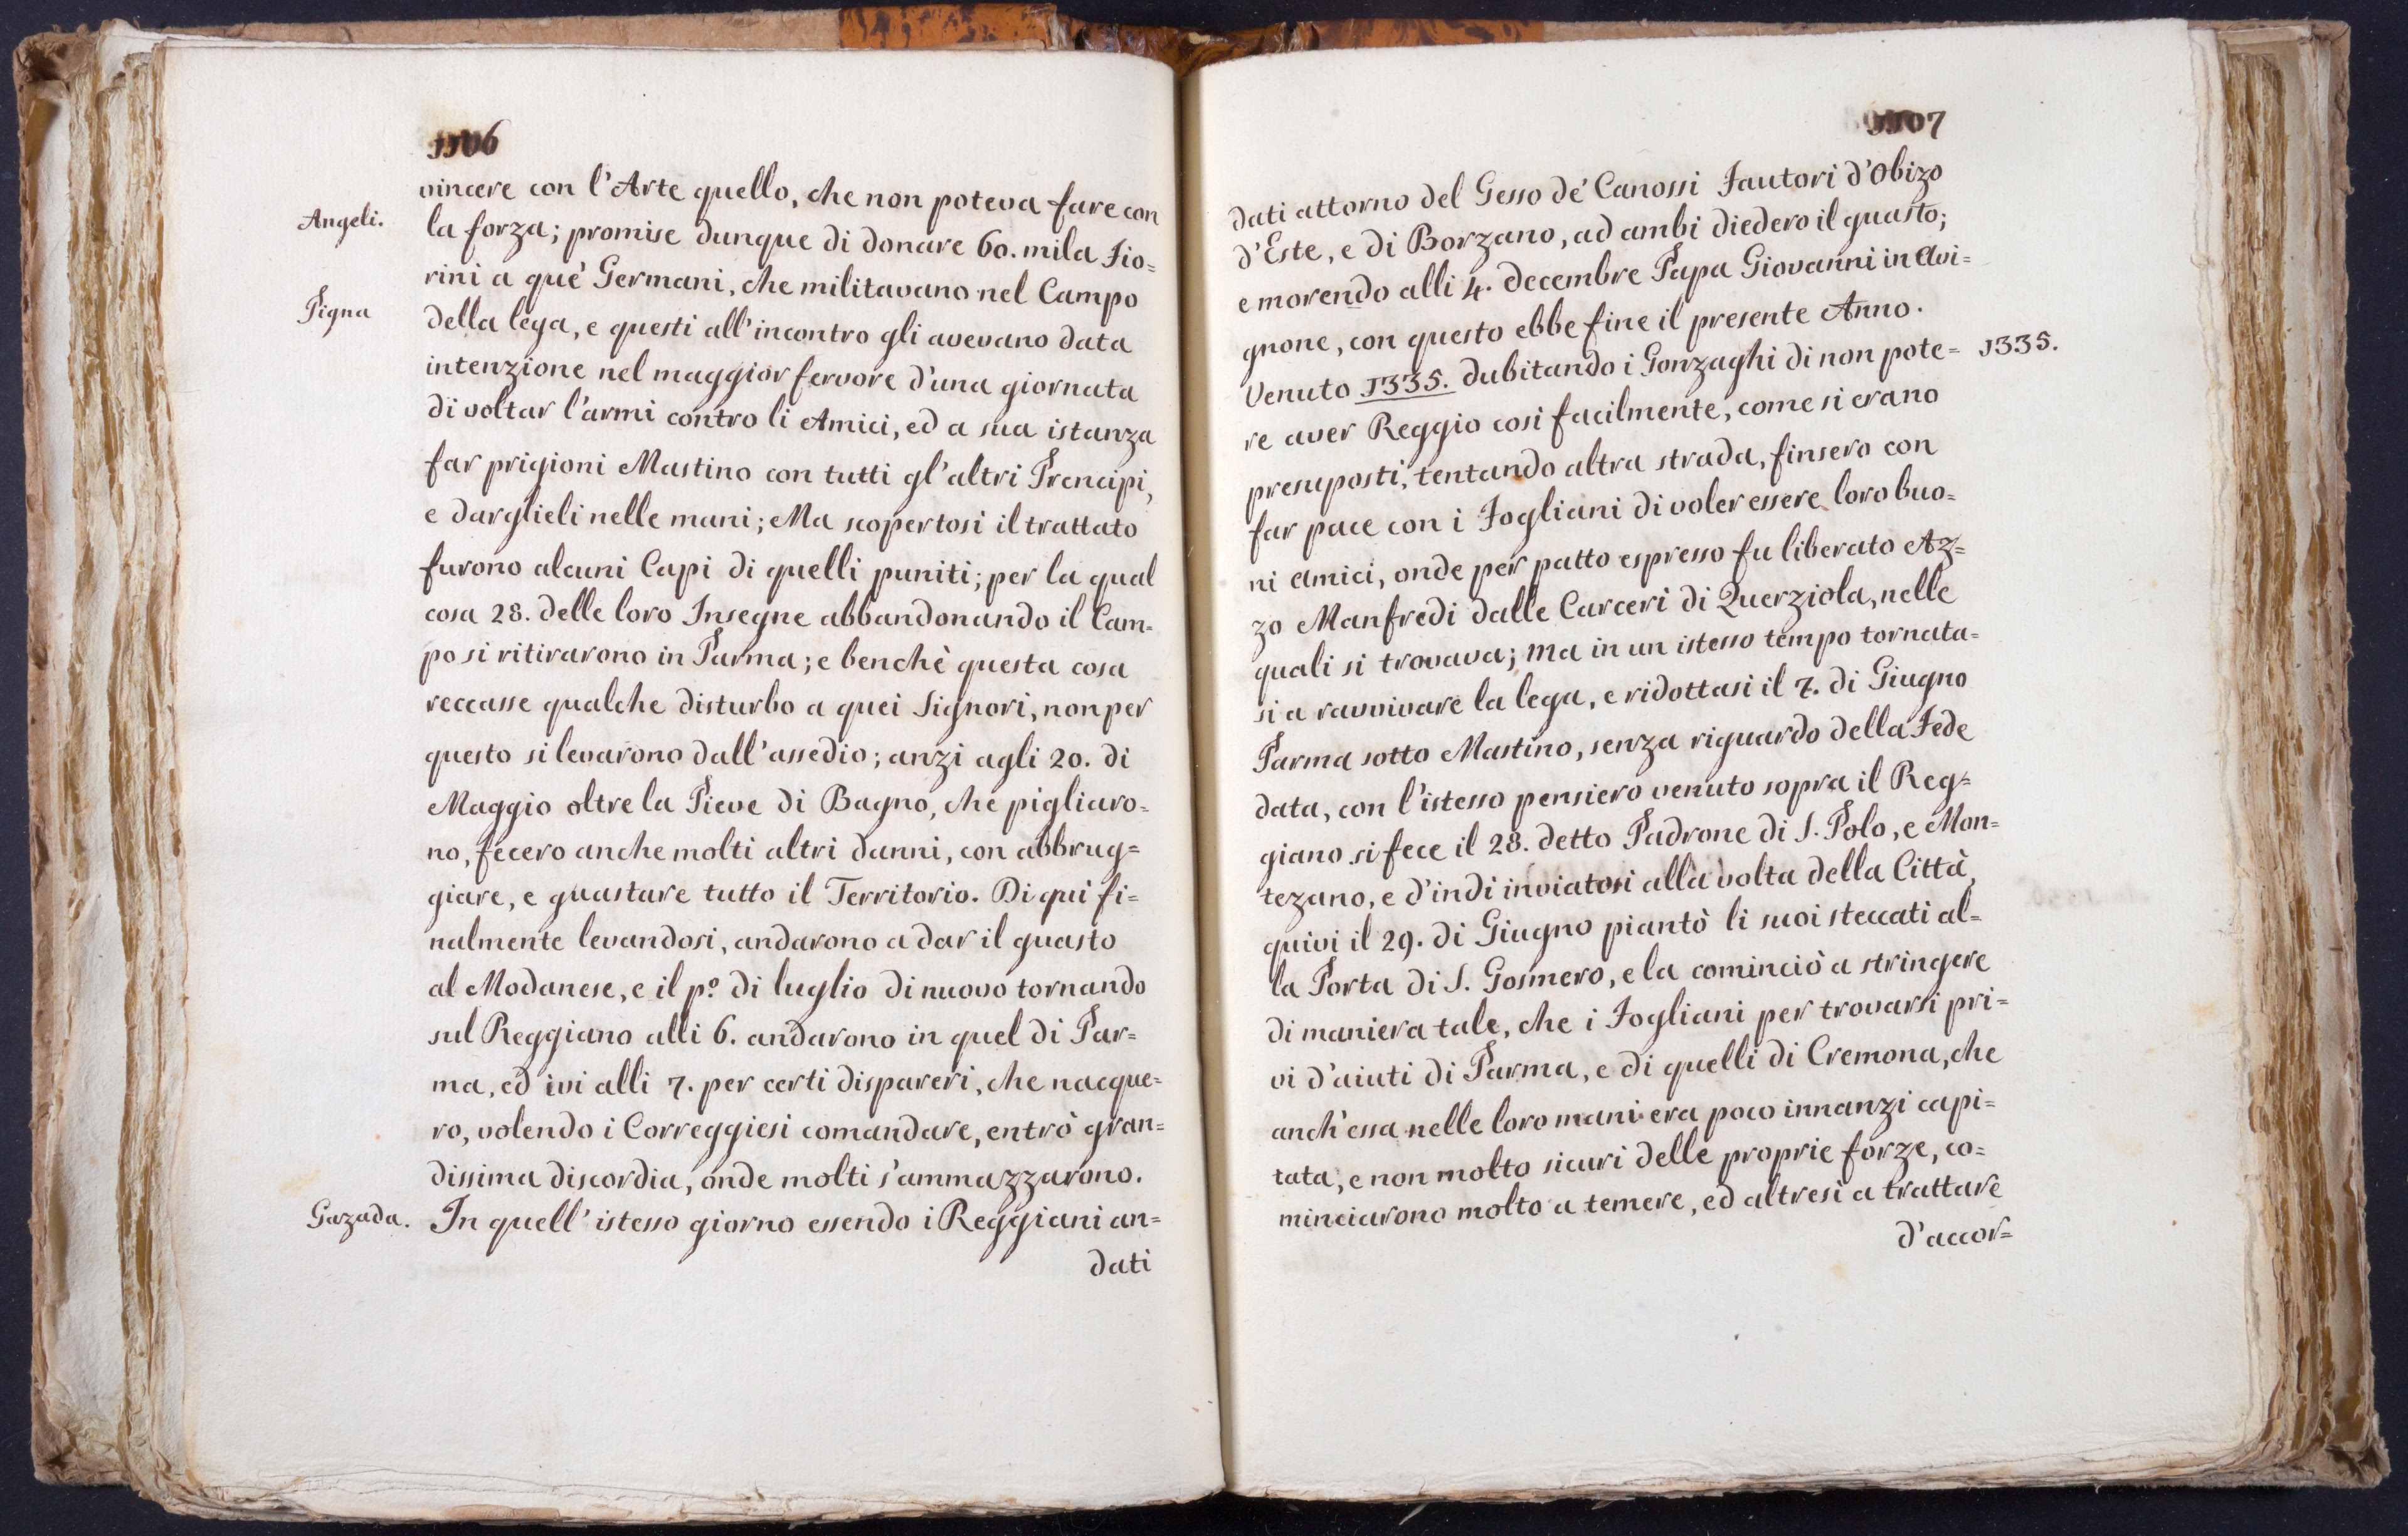 1106
vincere con l'Arte quello, che non poteva fare con
Angeli.
la forza; promise dunque di donare 60. mila Fio=
rini a què Germani, che militavano nel Campo
Pigna
della lega, e questi all'incontro gli avevano data
intenzione nel maggior fervore d'una giornata
di voltar l'armi contro li Amici, ed a sua istanza
far prigioni Mastino con tutti gl'altri Prencipi,
e darglieli nelle mani; Ma scopertosi il trattato
furono alcuni Capi di quelli puniti; per la qual
cosa 28. delle loro Insegne abbandonando il Cam=
po si ritirarono in Parma; e benchè questa cosa
reccasse qualche disturbo a quei Signori, non per
questo si levarono dall'assedio; anzi agli 20. di
Maggio oltre la Pieve di Bagno, che pigliaro=
no, fecero anche molti altri danni, con abbrug=
giare, e guastare tutto il Territorio. Di qui fi=
nalmente levandosi, andarono a dar il guasto
al Modanese, e il pº. di luglio di nuovo tornando
sul Reggiano alli 6. andarono in quel di Par=
ma, ed ivi alli 7. per certi dispareri, che nacque=
ro, volendo i Correggiesi comandare, entrò gran=
dissima discordia, onde molti s'ammazzarono.
Gazada.
In quell'istesso giorno essendo i Reggiani an=
dati
1107
dati attorno del Gesso de' Canossi Fautori d'Obizo
d'Este, e di Borzano, ad ambi diedero il guasto;
e morendo alli 4. decembre Papa Giovanni in Avi=
gnone, con questo ebbe fine il presente Anno.
Venuto 1335. dubitando i Gonzaghi di non pote=
1335.
re aver Reggio così facilmente, come si erano
presuposti, tentando altra strada, finsero con
far pace con i Fogliani di voler essere loro buo=
ni Amici, onde per patto espresso fu liberato Az=
zo Manfredi dalle Carceri di Querziola, nelle
quali si trovava; ma in un istesso tempo tornata=
si a ravvivare la lega, e ridottasi il 7. di Giugno
Parma sotto Mastino, senza riguardo della Fede
data, con l'istesso pensiero venuto sopra il Reg=
giano si fece il 28. detto Padrone di S. Polo, e Mon=
tezano, e d'indi inviatosi alla volta della Città,
quivi il 29. di Giugno piantò li suoi steccati al=
la Porta di S. Gosmero, e la cominciò a stringere
di maniera tale, che i Fogliani per trovarsi pri=
vi d'aiuti di Parma, e di quelli di Cremona, che
anch'essa nelle loro mani era poco innanzi capi=
tata, e non molto sicuri delle proprie forze, co=
minciarono molto a temere, ed altresì a trattare
d'accor=